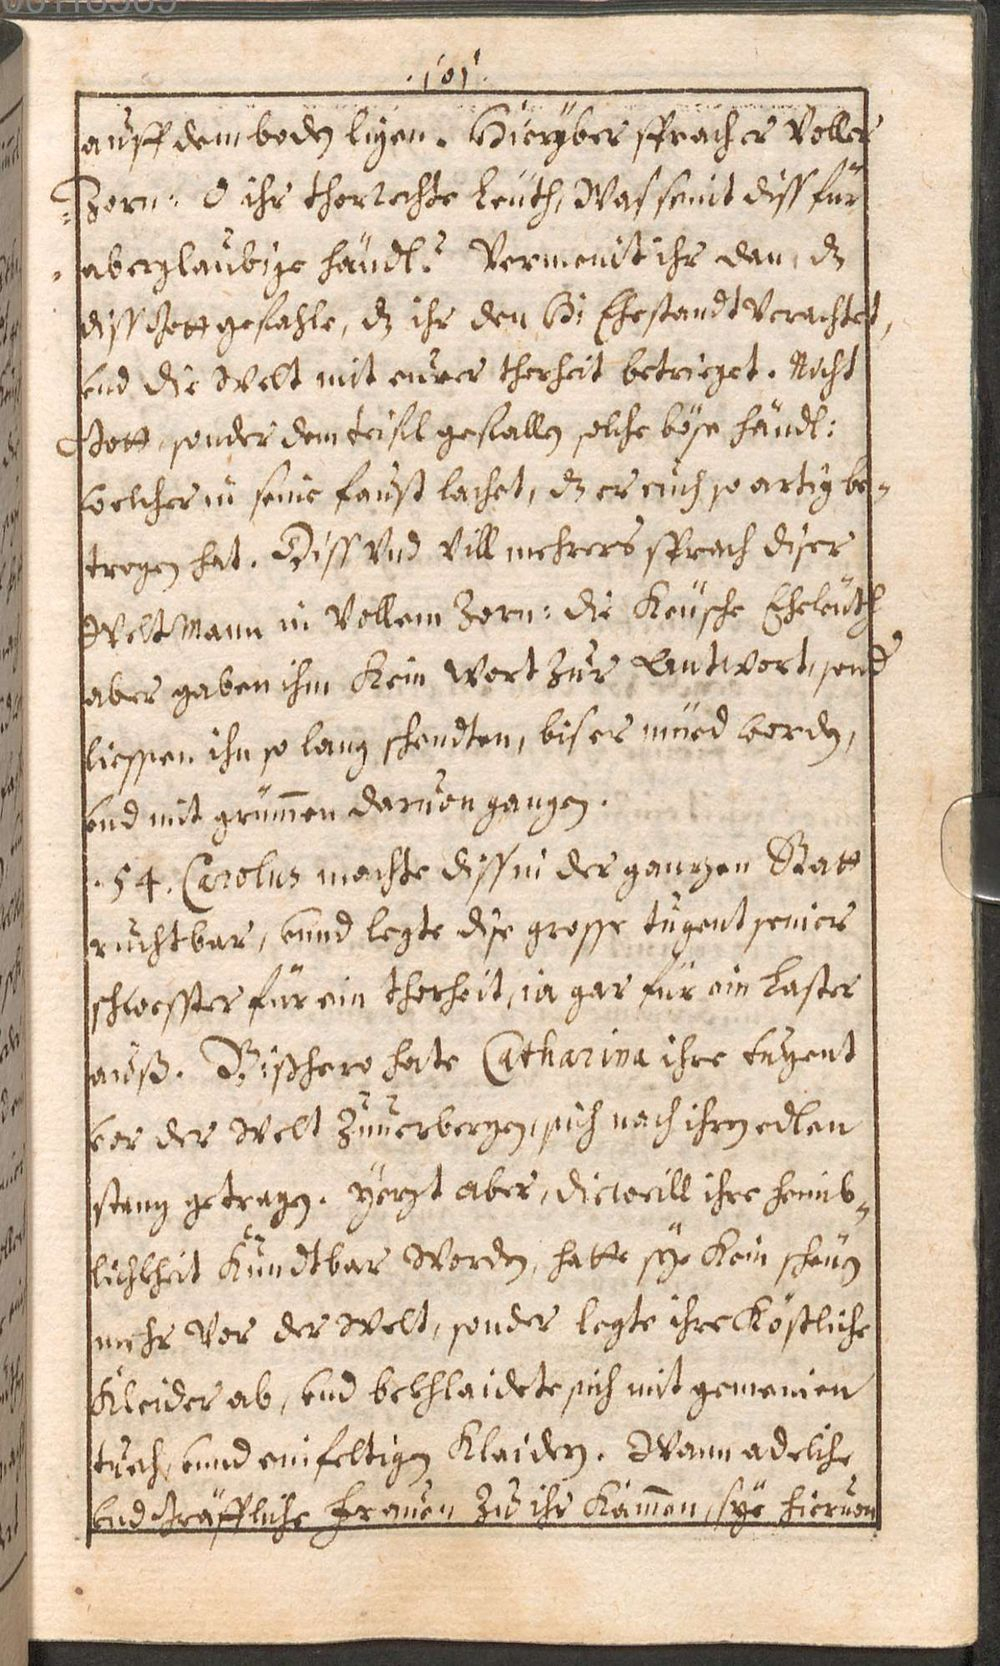 .101.
auff dem boden ligen. Hierÿber sprach er Voller
Zorn: O ihr thorechte Leüth, Was seint diss für
aberglaubige händl? Vermeint ihr dan, dz
diss Gott gefahle, dz ihr den H: Ehestandt Verachtet,
vnd die Welt mit eurer thorheit betrieget. Nicht
Gott, sonder dem teifil gefallen solche böse händl:
welcher in seine faust lachet, dz er euch so artig be-
trogen hat. Diss Vnd Vill mehrers sprach diser
Welt Mann in Vollem Zorn: die Keüsche Eheleüth
aber gaben ihm Kein Wort Zur Antwort, sond
liessen ihn so lang schendten, bis er müed worden,
vnd mit grim̅en daruon gangen.
.54. Carolus machte diss in der gantzen Statt
ruchtbar, vnnd legte dise grosse tugent seiner
schwesster für ein thorheit, ia gar für ein Laster
auß. Bißhero hate Catharina ihre tugent
vor der Welt Zuuerbergen, sich nach ihren edlen
stang getragen. Yetzt aber, dieweill ihre heimb-
lichkheit Kundtbar Worden, hatte sÿe Kein scheüg
mehr Vor der Welt, sonder legte ihre Köstliche
Kleider ab, vnd bekhlaidete sich mit gemeinen
tuech, vnnd einfeltigen Klaidern. Wann adeliche
vnd Gräffliche Frauen Zu ihr Kam̅en, sÿe hieruon